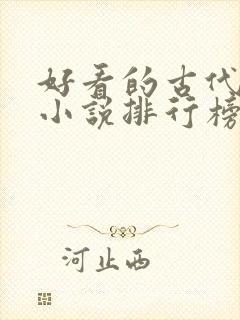 好看的古代
小说排行榜
河止西